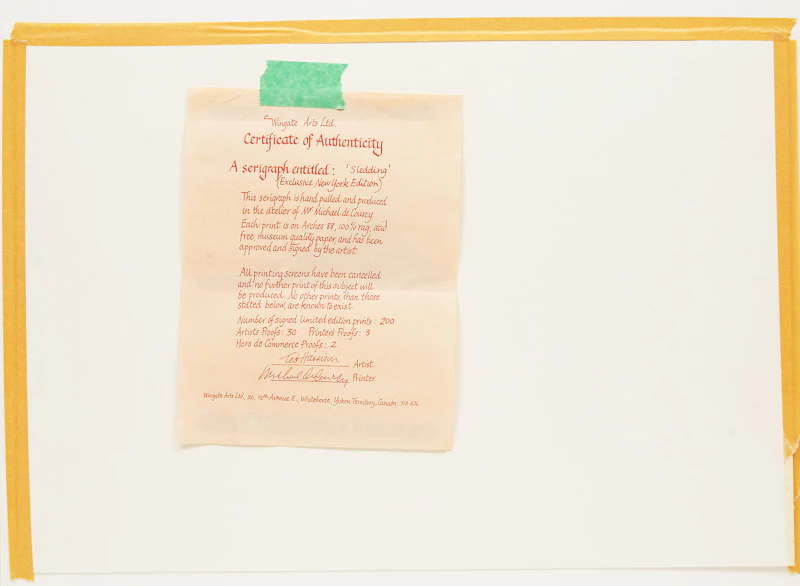 Wingate Arts Ltd.
Certificate of Authenticity
A serigraph entitled: 'Sledding'
(Exclusive New York Edition)
This serigraph is hand pulled and produced
in the atelier of Mr Michael de Courcy.
Each print is on Arches 88, 100% rag, acid
free, museum quality paper, and has been
approved and signed by the artist.
All printing screens have been cancelled
and no further print of this subject will
be produced. No other prints, than those
stated below, are known to exist.
Number of signed limited edition prints: 200
Artists Proofs: 30 Printers Proofs: 3
Hors de Commerce Proofs: 2
Ted Harrison Artist
Michael de Courcy Printer
Wingate Arts Ltd., 30, 12th Avenue E., Whitehorse, Yukon Territory, Canada.